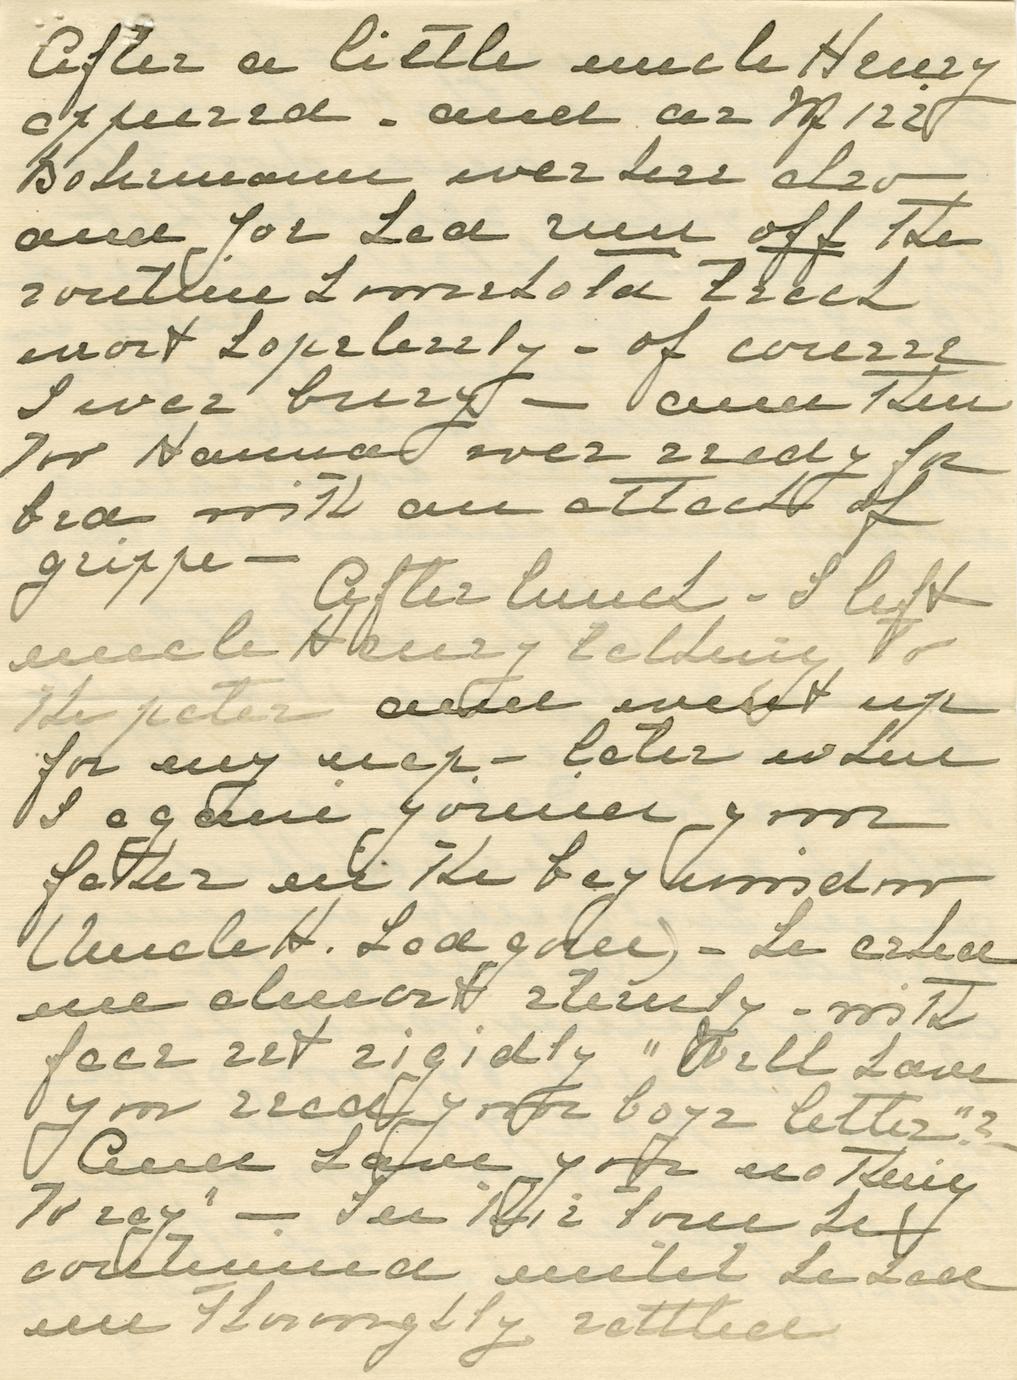 After a little uncle Henry
appeared - and as Miss
Bohrmann was here also
and Joe had run off the
routine household track
most hopelessly - of course
I was busy — and then
too Hanna was ready for
bed with an attack of
grippe —
After lunch - I left
uncle Henry talking to
the pater and went up
for my nap - later when
I again joined your
father in the bay window
(Uncle H. had gone) - he asked
me almost sternly - with
face set rigidly "Well have
you read your boys letter"?
And have you nothing
to say" — In this tone he
continued until he had
me thoroughly rattled